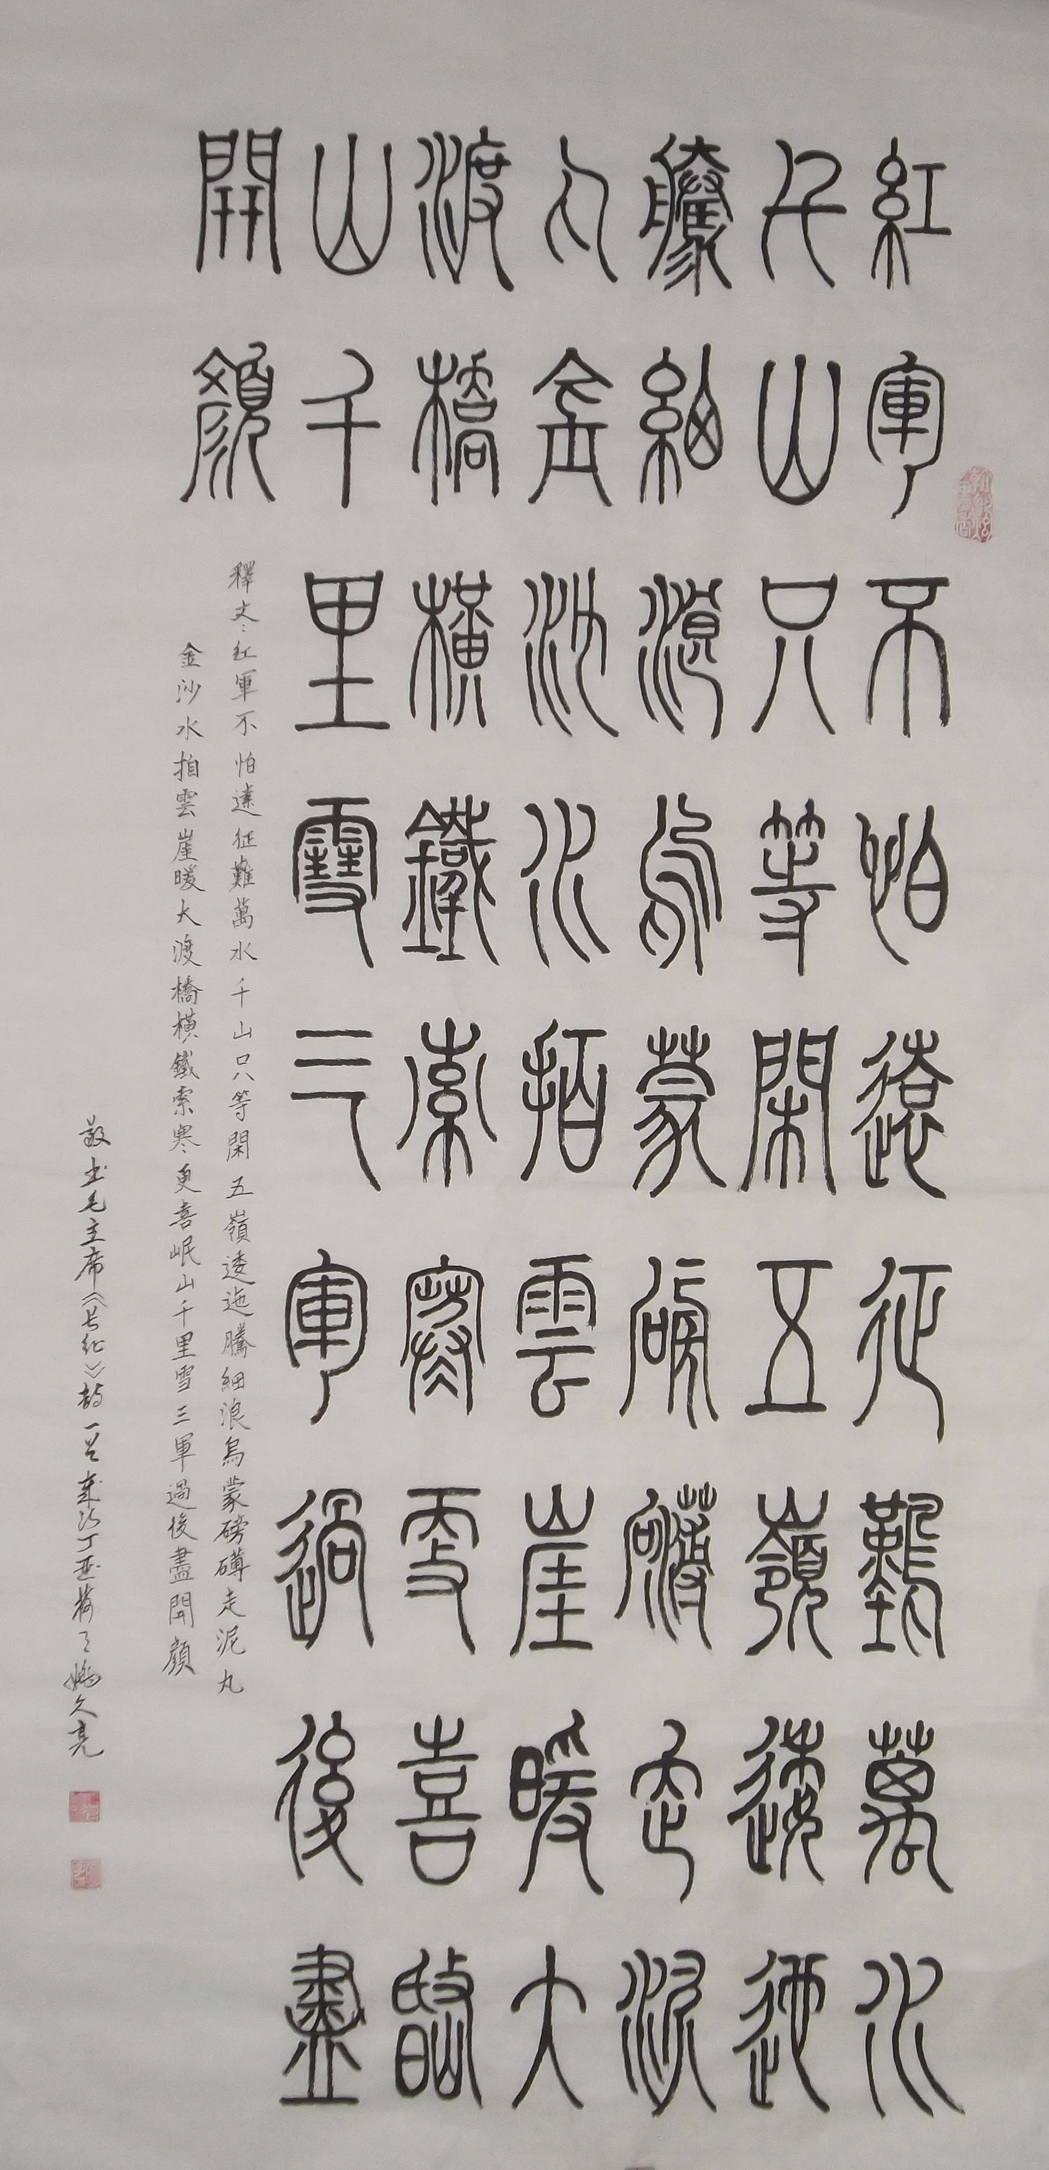 紅軍不怕遠征難萬水
千山只等閑五嶺逶迤
騰細浪烏蒙磅礴走泥
丸金沙水拍雲崖暖大
渡橋橫鐵索寒更喜岷
山千里雪三軍過後盡
開顏
釋文：紅軍不怕遠征難萬水千山只等閑五嶺逶迤騰細浪烏蒙磅礴走泥丸
金沙水拍雲崖暖大渡橋橫鐵索寒更喜岷山千里雪三軍過後盡開顏
敬书毛主席《长征》诗一首歲次丁酉梅月姚久亮